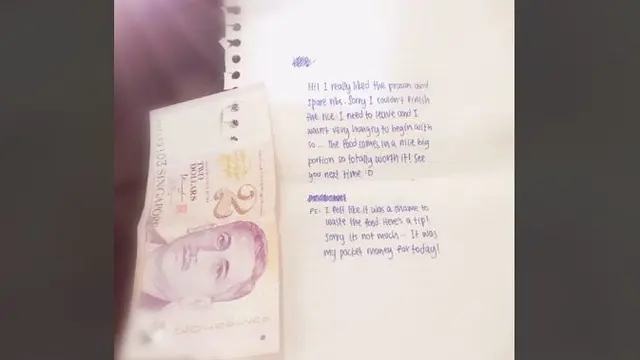 Hi! I really liked the prawn and
spare ribs. Sorry I couldn't finish
the rice. I need to leave and I
wasn't very hungry to begin with
so... The food comes in a nice big
portion so totally worth it! See
you next time :D
PS: I felt like it was a shame to
waste the food. Here's a tip!
Sorry its not much... It was
my pocket money for today!
TWO
DOLLARS
2
SINGAPORE